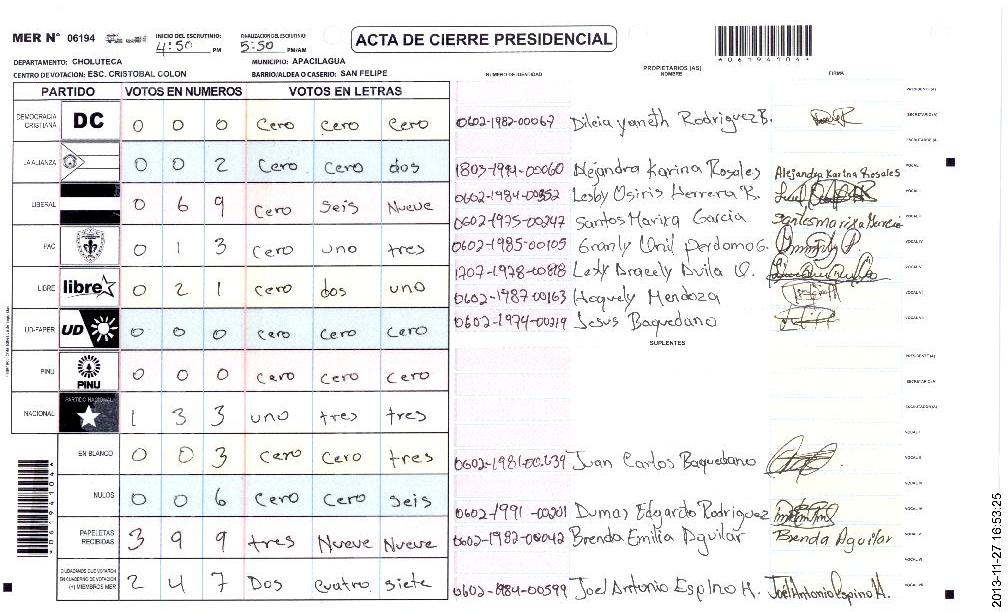 MER N° 06194
INICIO DEL ESCRUTINIO: 4:50 PM
FINALIZACION DEL ESCRUTINIO: 5:50 PM/AM
ACTA DE CIERRE PRESIDENCIAL
DEPARTAMENTO: CHOLUTECA
MUNICIPIO: APACILAGUA
CENTRO DE VOTACION: ESC. CRISTOBAL COLON
BARRIO/ALDEA O CASERIO: SAN FELIPE
NUMERO DE IDENTIDAD
PROPIETARIOS (AS)
NOMBRE
FIRMA
PARTIDO VOTOS EN NUMEROS VOTOS EN LETRAS
DEMOCRACIA CRISTIANA DC 0 0 0 Cero Cero Cero
LA ALIANZA 0 0 2 Cero Cero dos
LIBERAL 0 6 9 Cero Seis Nueve
PAC 0 1 3 Cero uno tres
LIBRE libre 0 2 1 Cero dos uno
UD-FAPER UD 0 0 0 Cero Cero Cero
PINU PINU 0 0 0 Cero Cero Cero
NACIONAL PARTIDO NACIONAL 1 3 3 uno tres tres
EN BLANCO 0 0 3 Cero Cero tres
NULOS 0 0 6 Cero Cero Seis
PAPELETAS RECIBIDAS 3 9 9 tres Nueve Nueve
CIUDADANOS QUE VOTARON EN CUADERNO DE VOTACION (+) MIEMBROS MER 2 4 7 Dos Cuatro siete
0602-1982-00067 Dilcia yaneth Rodriguez B.
1803-1991-00060 Alejandra Karina Rosales Alejandra Karina Rosales
0602-1984-00352 Lesby Osiris Herrera R.
0602-1975-00247 Santos Marixa Garcia Santos marixa Garcia
0602-1985-00105 Perdomo G.
1707-1978-00818 Lesly Aracely Avila O.
0602-1987-00163 Mendoza
0602-1974-00219 Jesus Baquedano
SUPLENTES
0602-1981-00639 Juan Carlos Baquedano
0602-1991-00201 Dumas Edgardo Rodriguez
0602-1982-00042 Brenda Emilia Aguilar Brenda Aguilar
0602-1984-00599 Joel Antonio Espino H. Joel Antonio Espino H.
2013-11-27 16:53:25